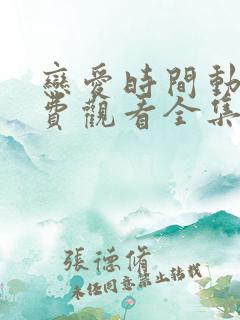 戀愛時間動
費觀看全集
張德脩
未经同意禁止转载